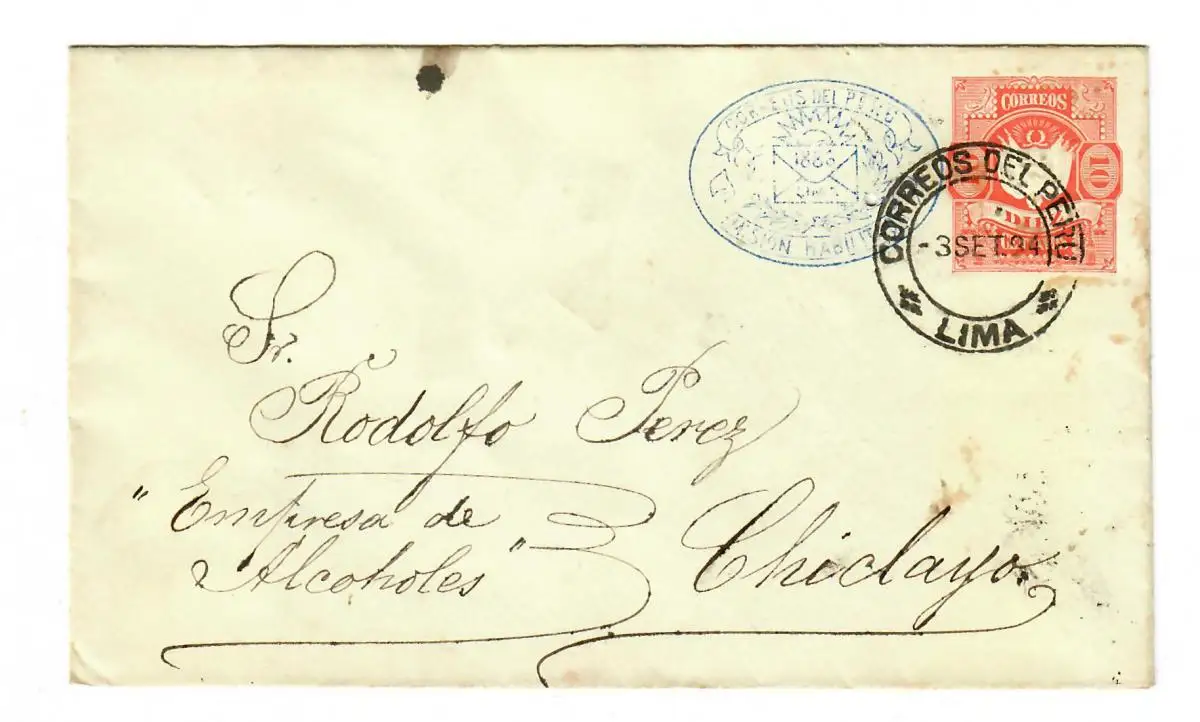 CORREOS DEL PERU
1883
CORREOS
10
CORREOS DEL PERU
-3SET.94
LIMA
Sr.
Rodolfo Perez
"Empresa de
Alcoholes"
Chiclayo.